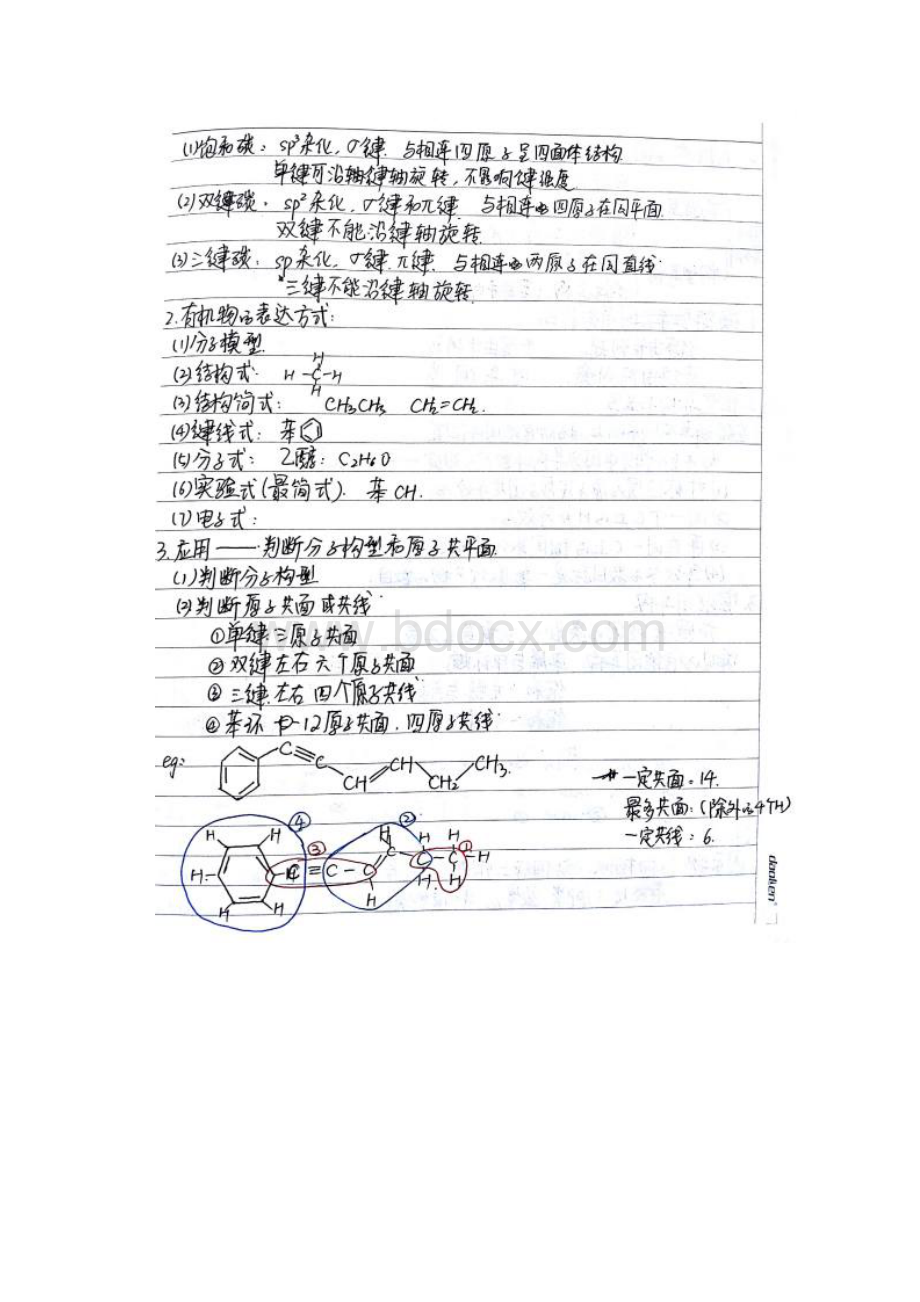 (1)饱和碳: sp³杂化, σ键. 与相连四原子呈四面体结构
单键可沿轴键轴旋转, 不影响键强度
(2)双键碳. sp²杂化, σ键和π键 与相连四原子在同平面.
双键不能沿键轴旋转.
(3)三键碳: sp杂化, σ键. π键. 与相连两原子在同直线.
三键不能沿键轴旋转.
2.有机物的表达方式:
(1)分子模型.
(2)结构式: H-C-H H H
(3)结构简式: CH3CH3 CH2=CH2.
(4)键线式: 苯
(5)分子式: 乙醇: C2H6O
(6)实验式(最简式). 苯 CH.
(7)电子式:
3.应用——判断分子构型和原子共平面.
(1)判断分子构型
(2)判断原子共面或共线.
①单键三原子共面
②双键左右六个原子共面
③三键左右四个原子共线
④苯环中12原子共面. 四原子共线.
www.bdocx.com
eg: C≡C CH=CH CH2 CH3.
一定共面=14.
最多共面:(除外的4个H)
一定共线: 6.
④ ③ ② ①
H H H H H C≡C-C C C C H H H H H H H
daoken